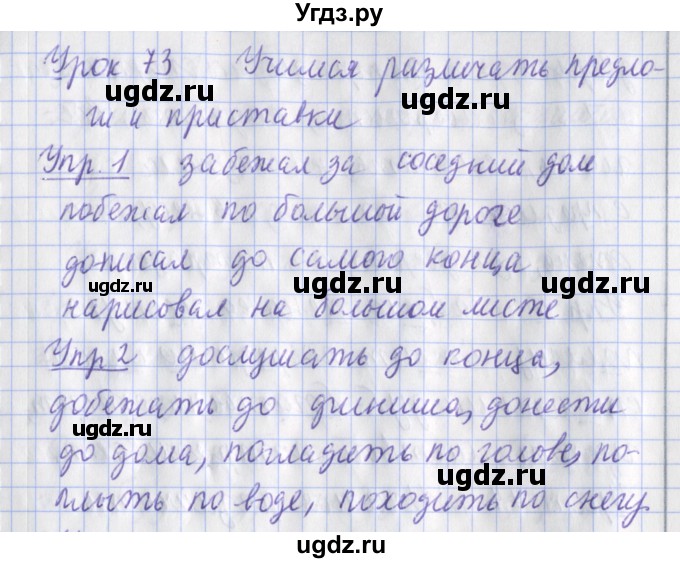 Угдз.ру
Урок 73 Учимся различать предло-
ugdz.ru ugdz.ru
ги и приставки
Упр. 1 забежал за соседний дом
ugdz.ru
побежал по большой дороге
дописал до самого конца
ugdz.ru ugdz.ru
нарисовал на большом листе
Упр 2 дослушать до конца,
добежать до финиша, донести
ugdz.ru
до дома, погладить по голове, по-
ugdz.ru ugdz.ru
плыть по воде, походить по снегу.
ugdz.ru